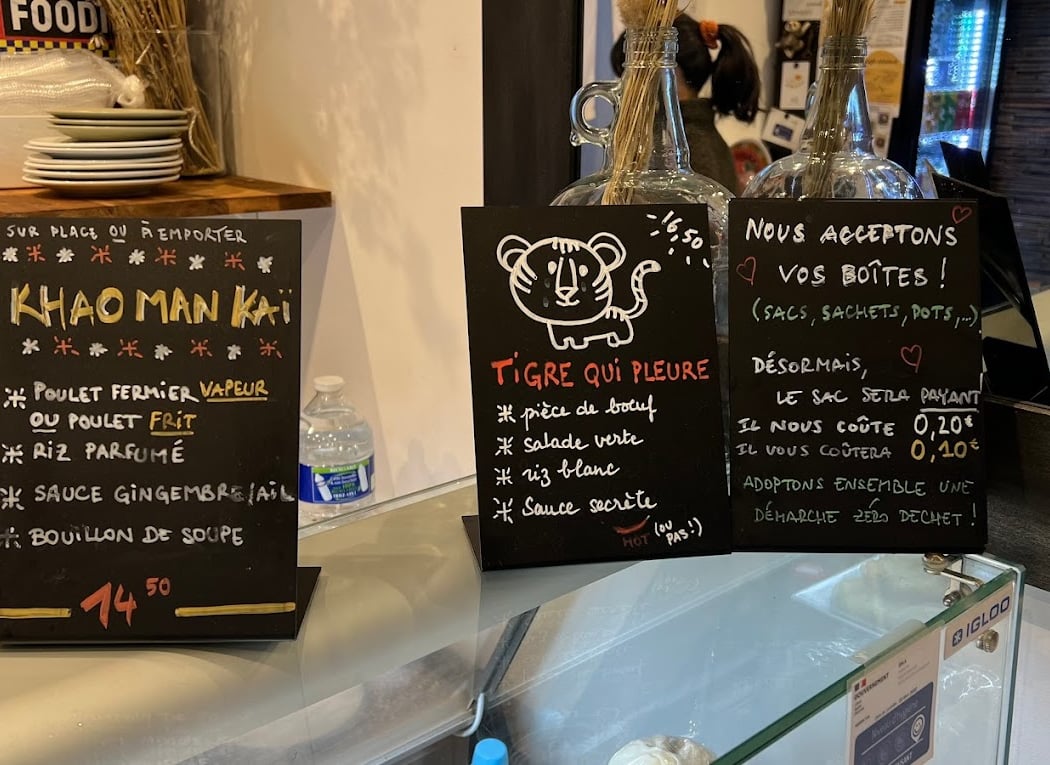 FOOD
SUR PLACE OU À EMPORTER
KHAO MAN KAÏ
POULET FERMIER VAPEUR
OU POULET FRIT
RIZ PARFUMÉ
SAUCE GINGEMBRE/AIL
BOUILLON DE SOUPE
14 50
16,50
TIGRE QUI PLEURE
pièce de bœuf
salade verte
riz blanc
Sauce secrète
HOT (OU PAS!)
NOUS ACCEPTONS
VOS BOÎTES !
(SACS, SACHETS, POTS,...)
DÉSORMAIS,
LE SAC SERA PAYANT
IL NOUS COÛTE 0,20€
IL VOUS COÛTERA 0,10€
ADOPTONS ENSEMBLE UNE
DÉMARCHE ZÉRO DECHET !
IGLOO
GOUVERNEMENT